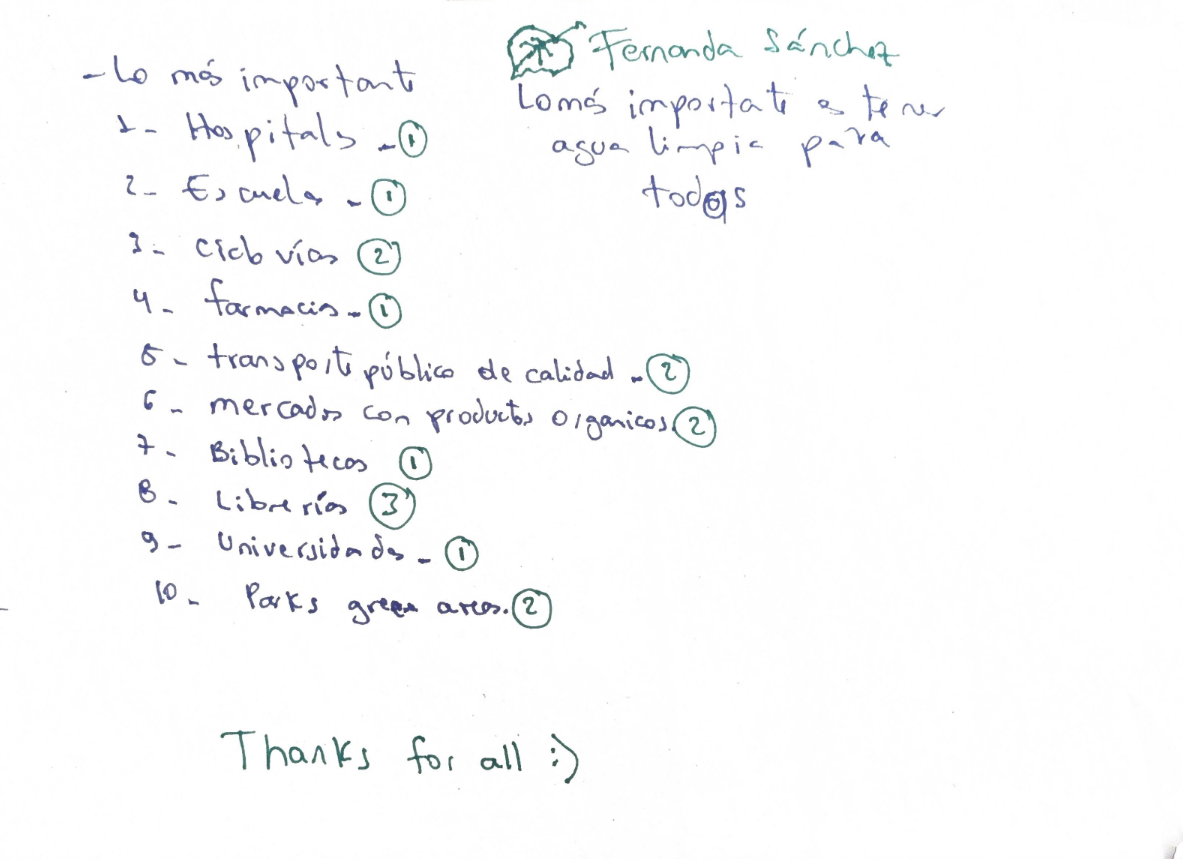 - Lo más importante
1- Hospitals - 1
2- Escuelas - 1
3- Ciclovías 2
4- farmacias - 1
5- transporte público de calidad - 2
6- mercados con productos organicos 2
7- Bibliotecas 1
8- Librerías 3
9- Universidades - 1
10- Parks green areas. 2
Fernanda Sánchez
Lo más importate es tener
agua limpia para
todos
Thanks for all :)